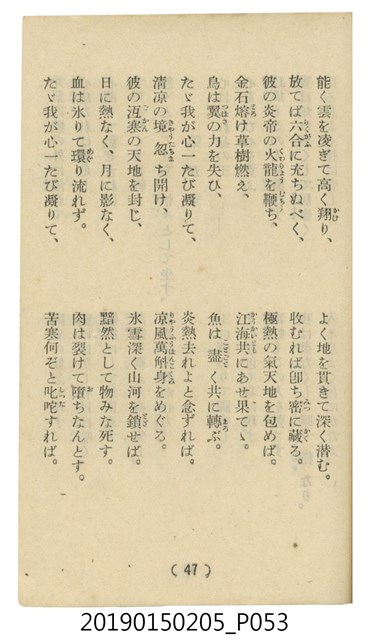 能く雲を凌ぎて高く翔り、よく地を貫きて深く潜む。
放てば六合に充ちぬべく、收むれば卽ち密に藏る。
彼の炎帝の火龍を鞭ち、極熱の氣天地を包めば。
金石熔け草樹燃え、江海共にあせ果てゝ、
鳥は翼の力を失ひ、魚は盡く共に轉ぶ。
たゞ我が心一たび凝りて、炎熱去れよと念ずれば。
淸凉の境忽ち開け、凉風萬斛身をめぐる。
彼の冱寒の天地を封じ、氷雪深く山河を鎖せば。
日に熱なく、月に影なく、黯然として物みな死す。
血は氷りて環り流れず。肉は裂けて墮ちなんとす。
たゞ我が心一たび凝りて、苦寒何ぞと叱咤すれば。
(47)
20190150205_P053